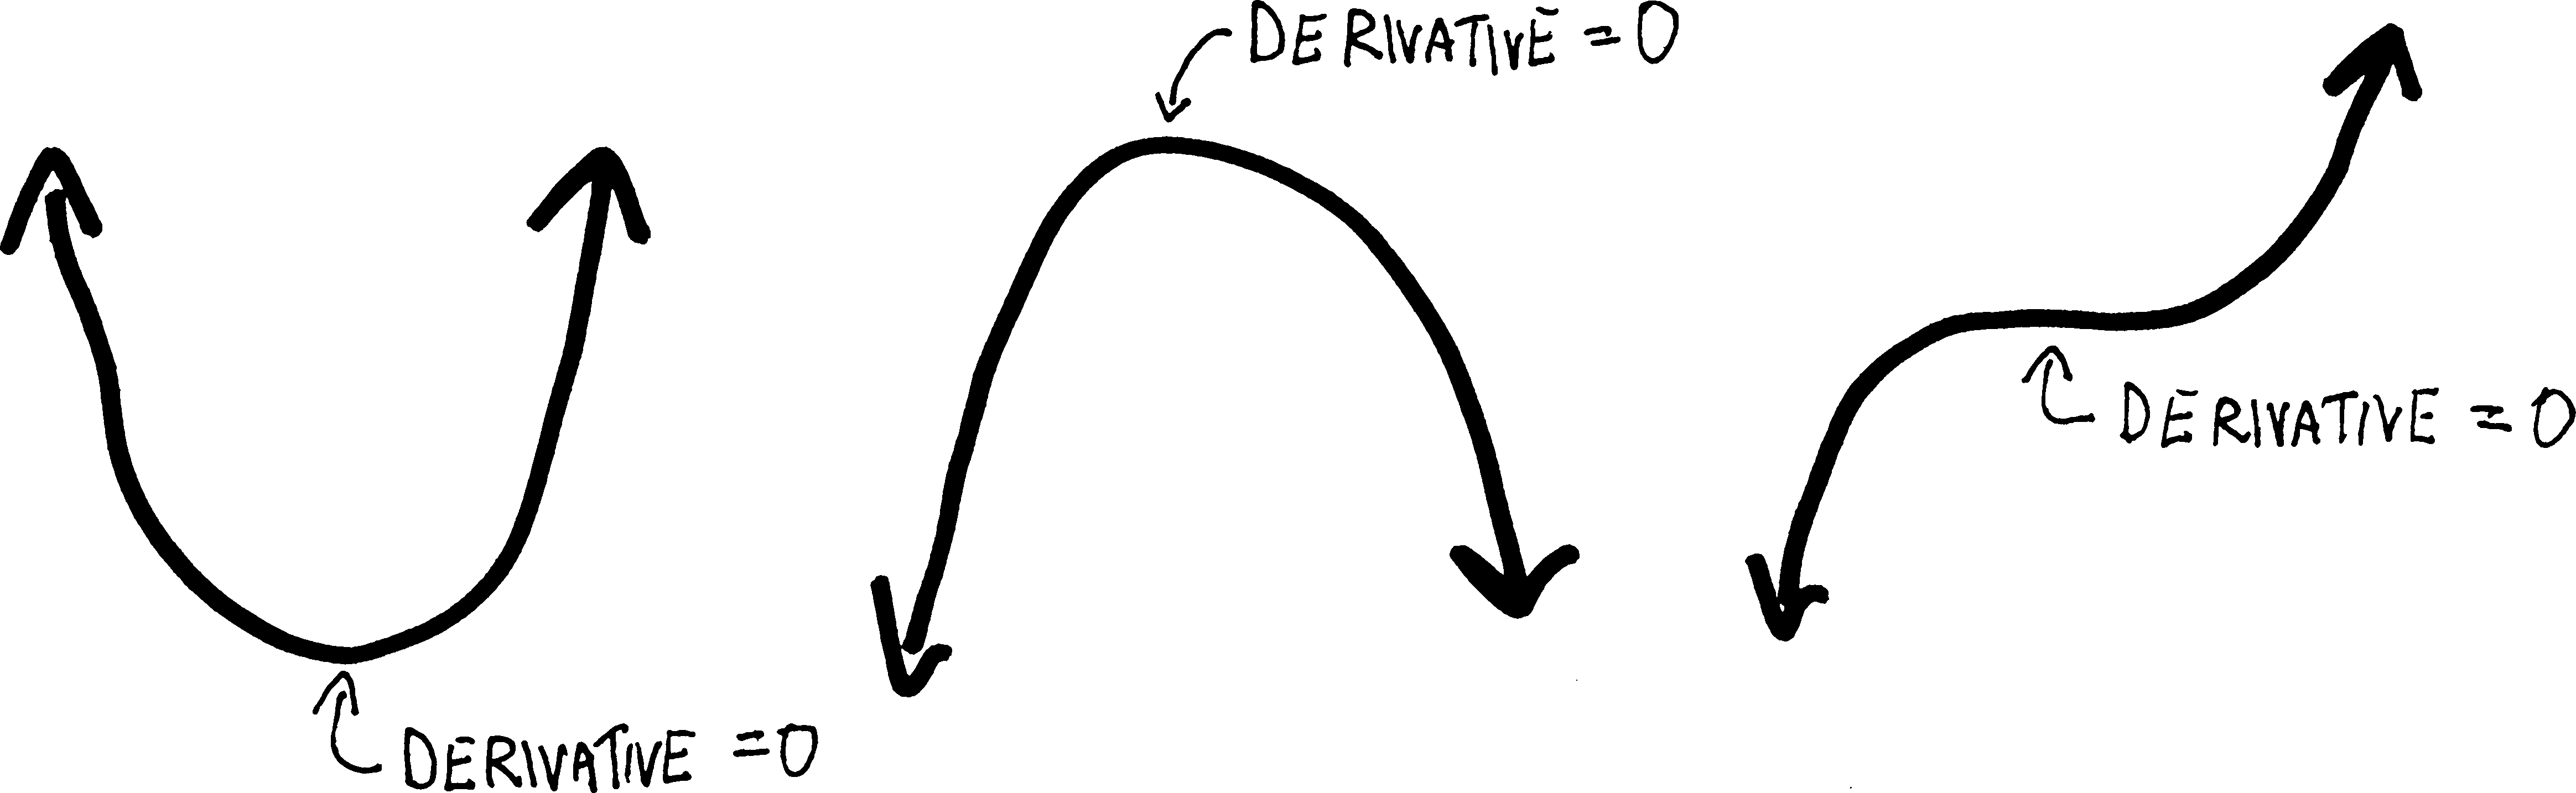 DERIVATIVE = 0
DERIVATIVE = 0
DERIVATIVE = 0